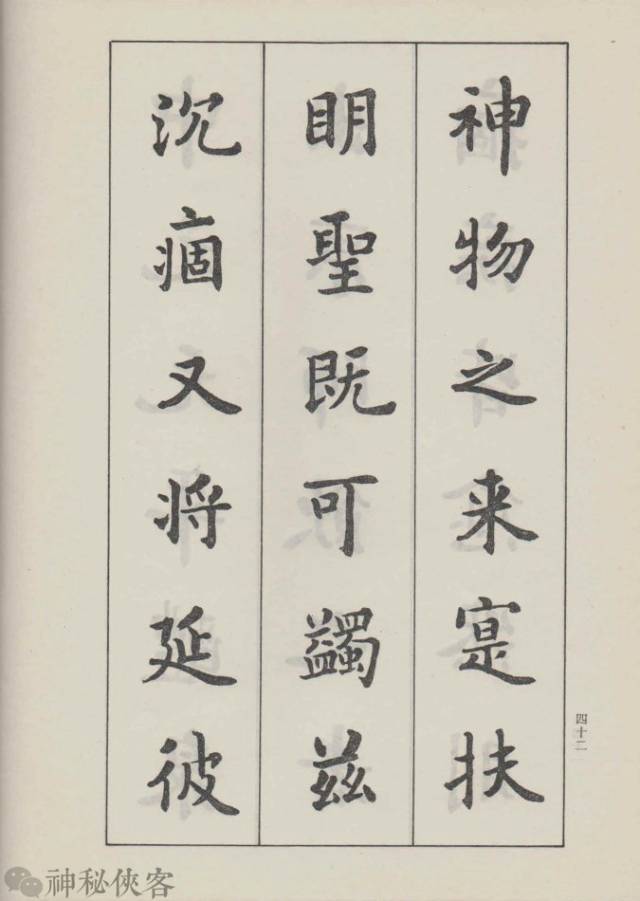 神物之来寔扶
明聖既可蠲兹
沉痼又将延彼
四十二
神秘侠客